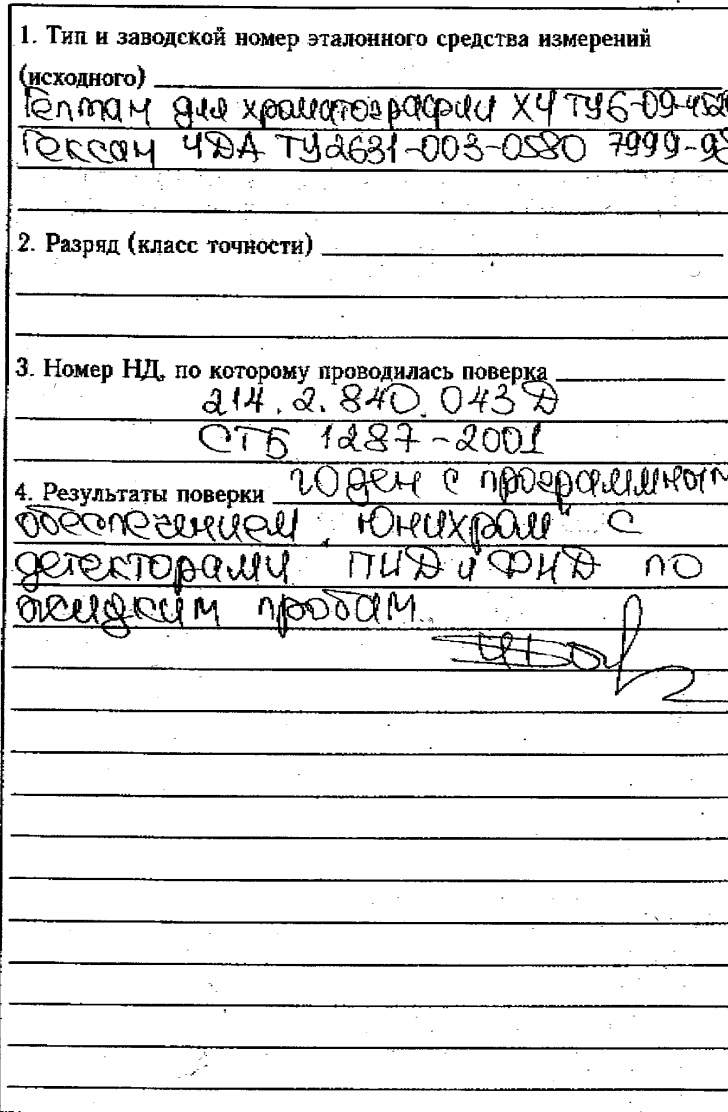 1. Тип и заводской номер эталонного средства измерений
(исходного)
Гептан для хроматографии ХЧ ТУ6-09-452
Гексан ЧДА ТУ2631-003-0580 7999-98
2. Разряд (класс точности)
3. Номер НД, по которому проводилась поверка
214.2.840.043 Д
СТБ 1287-2001
4. Результаты поверки годен с программным
обеспечением „Юнихром" с
детекторами ПИД и ФИД по
жидким пробам.